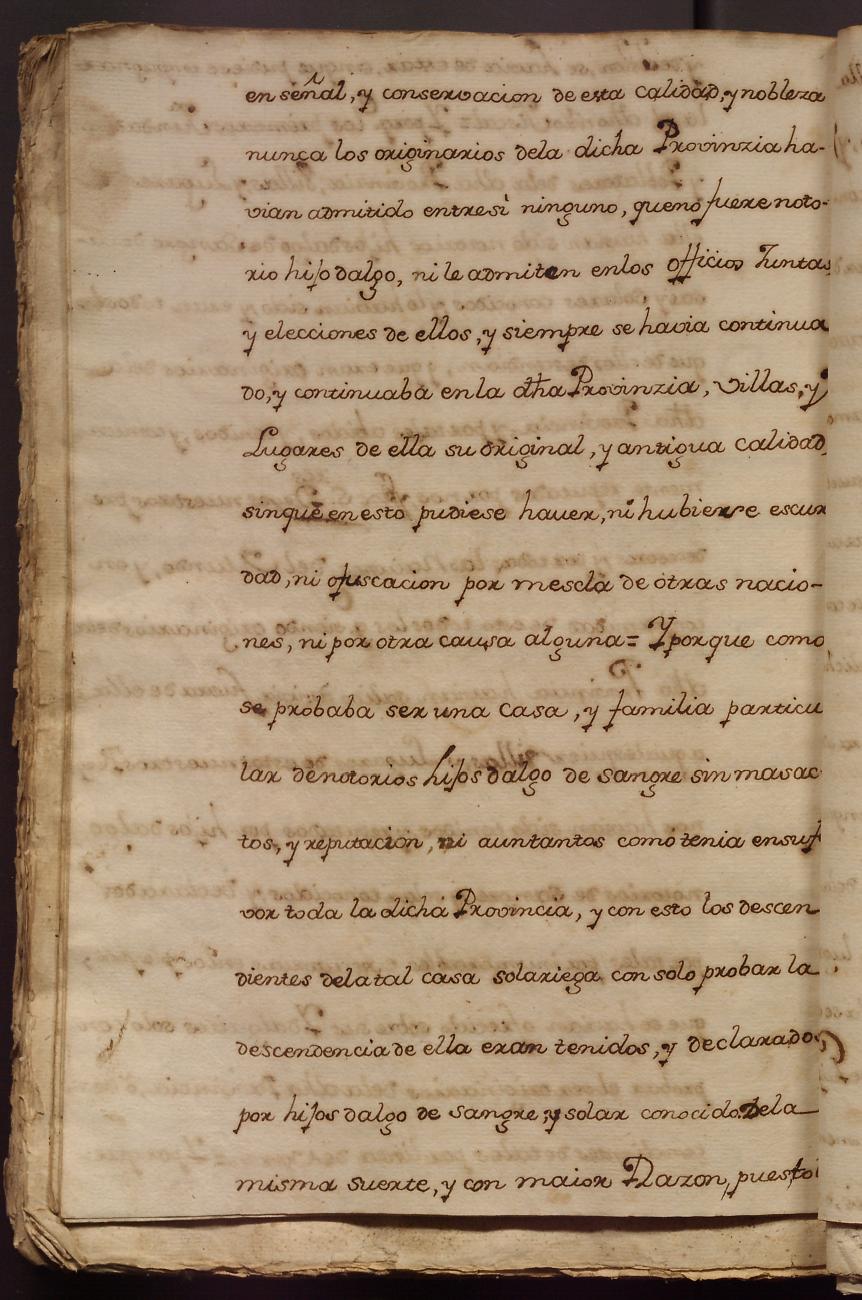 en señal, y conservacion de esta calidad, y nobleza
nunca los originarios dela dicha Provinzia ha-
vian admitido entresì ninguno, queno fuere noto-
rio hijodalgo, ni le admiten enlos officios Juntas
y elecciones de ellos, y siempre se havia continua
do, y continuaba en la dha Provinzia, Villas, y
Lugares de ella su original, y antigua calidad
sinque en esto pudiese haver, ni hubierse escur
dad, ni ofuscacion por mescla de otras nacio-
nes, ni por otra causa alguna= Y porque como
se probaba ser una casa, y familia particu
lar denotorios hijosdalgo de sangre sin mas ac
tos, y reputacion, ni aun tantos como tenia ensuf
vor toda la dicha Provincia, y con esto los descen
dientes dela tal casa solariega con solo probar la
descendencia de ella eran tenidos, y declarados
por hijosdalgo de sangre, y solar conocido. Dela
misma suerte, y con maior Razon, puesto